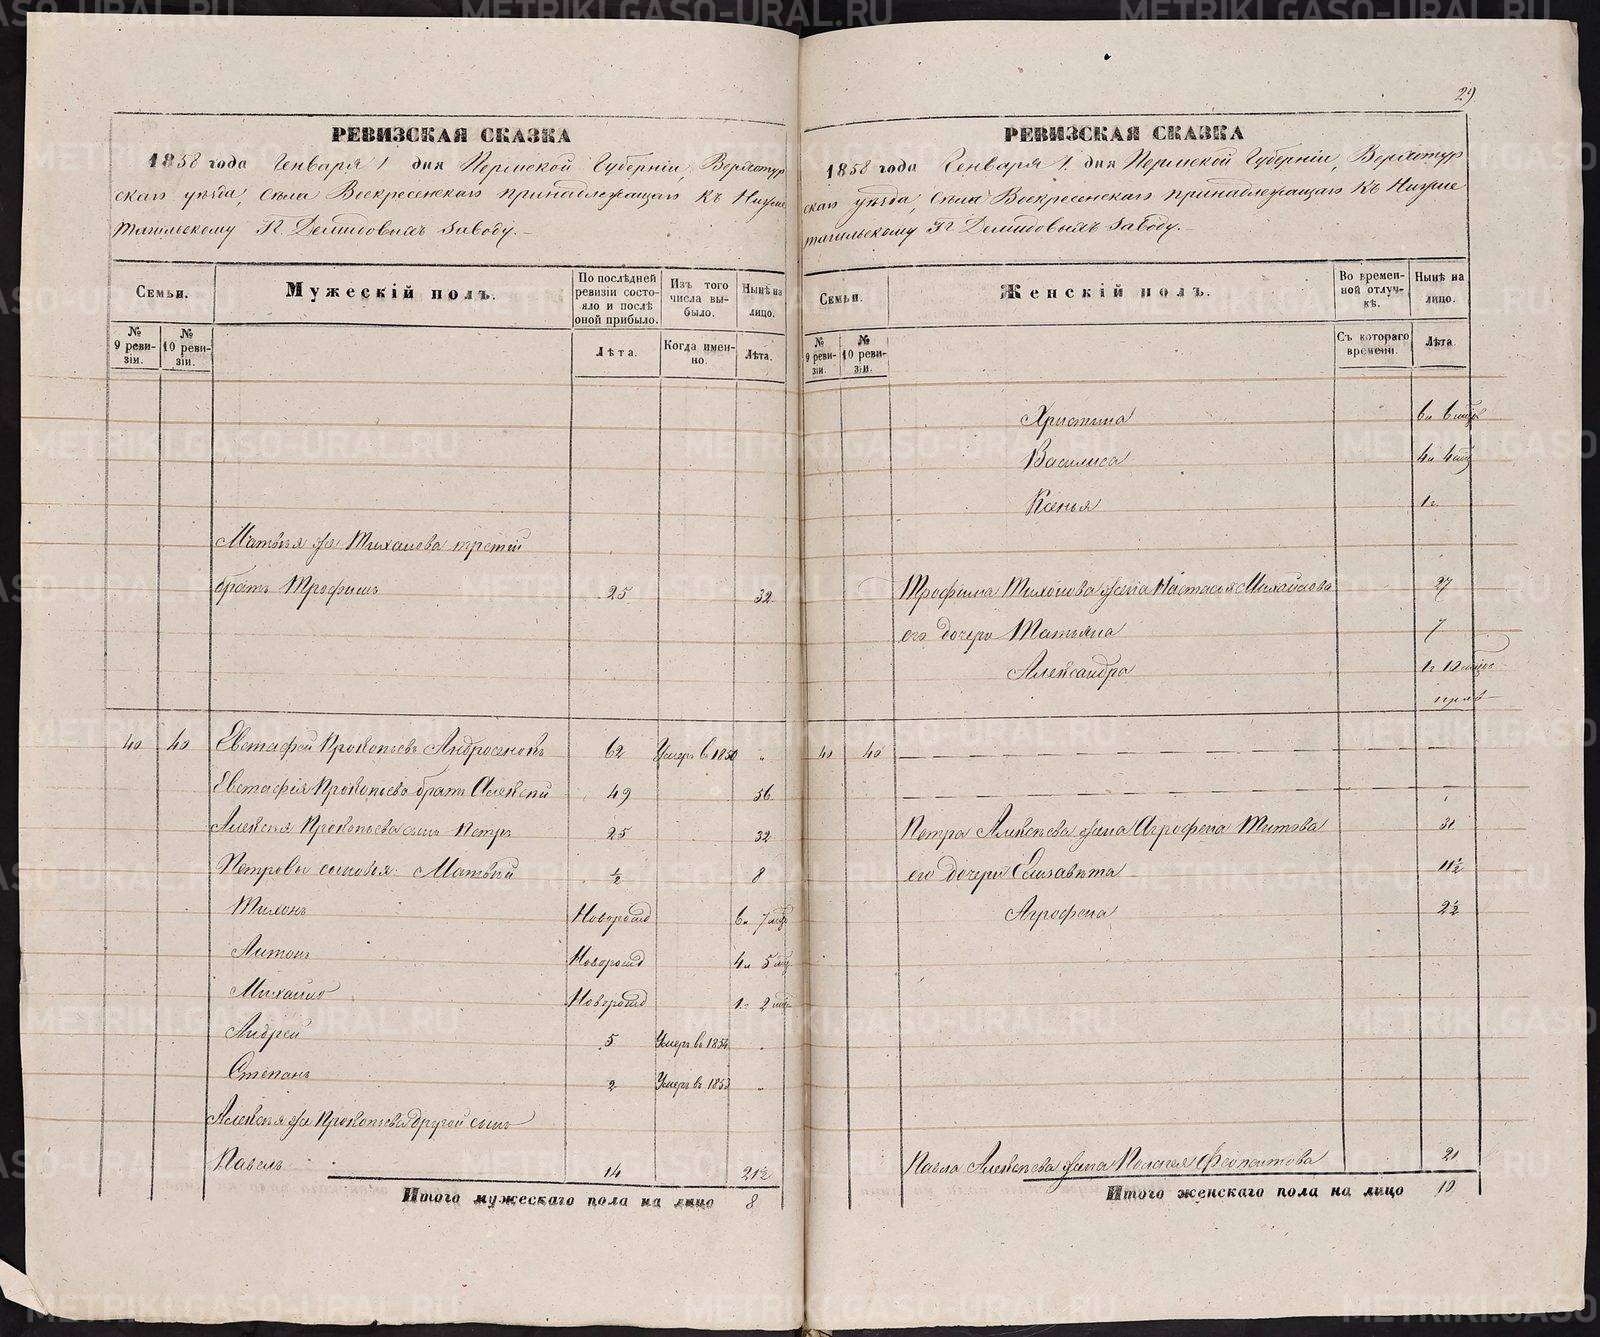 29.
РЕВИЗСКАЯ СКАЗКА
1858 года Генваря 1 дня Пермской Губерніи, Верхотур
скаго уѣзда, Села Воскресенскаго принадлежащаго къ Нижне
тагильскому Гг. Демидовыхъ Заводу.
Семьи.
Мужескій полъ.
По послѣдней ревизіи состояло и послѣ оной прибыло.
Изъ того числа выбыло.
Нынѣ на лицо.
№ 9 ревизіи.
№ 10 ревизіи.
Лѣта.
Когда именно.
Лѣта.
Матвѣя же Тихонова третій
братъ Трофимъ 25 32
40 40 Евстафей Прокопьевъ 62 Умеръ в 1850 „
Евстафія Прокопьева братъ Алексѣй 49 56
Алексѣя Прокопьева сынъ Петръ 25 32
Петровы сыновья: Матвѣй ½ 8
Тихонъ Новорожд 6л 7 мѣц
Антонъ Новорожд 4л 5 мѣц
Михайло Новорожд 1г 2 мѣц
Андрей 5 Умеръ въ 1854 „
Степанъ 2 Умеръ въ 1853 „
Алексѣя же Прокопьева другой сынъ
Павелъ 14 21½
Итого мужескаго пола на лицо 8
РЕВИЗСКАЯ СКАЗКА
1858 года Генваря 1. дня Пермской Губерніи, Верхотур
скаго уѣзда, Села Воскресенскаго принадлежащаго къ Нижне
тагильскому Гг Демидовыхъ Заводу.
Семьи.
Женскій полъ.
Во временной отлучкѣ.
Нынѣ на лицо.
№ 9 ревизіи.
№ 10 ревизіи.
Съ котораго времени.
Лѣта.
Христина 6л 6 мѣц
Василиса 4л 4 мѣц
Ксенья 1г
Трофима Тихонова жена Настасья Михайлова 27
его дочери Татьяна 7
Александра
40 40
Петра Алексѣева жена Агрофена Титова 31
его дочери Елизавета 11½
Агрофена 2½
Павла Алексѣева жена Пелагея 21
Итого женскаго пола на лицо 10
METRIKI.GASO-URAL.RU